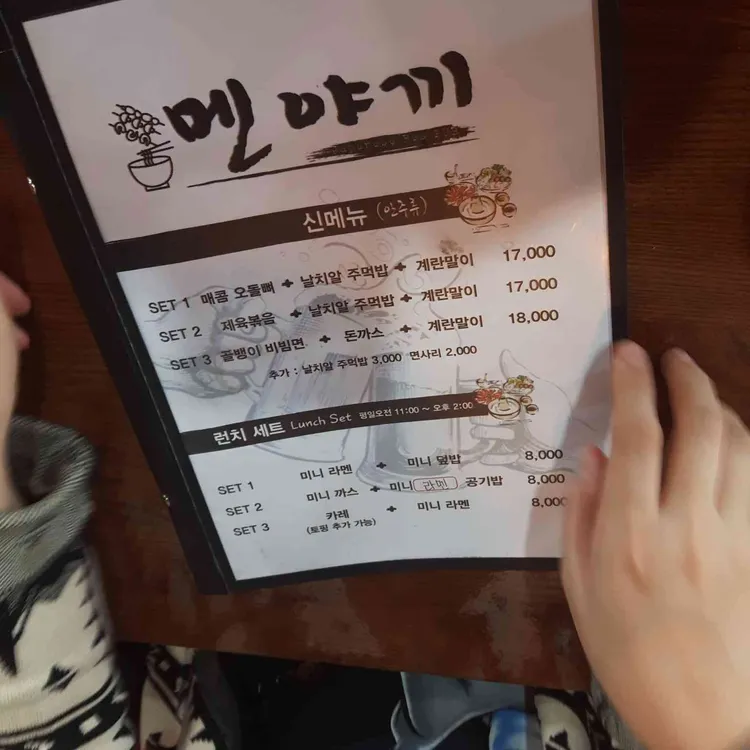 멘야끼
신메뉴 (안주류)
SET 1 매콤 오돌뼈 + 날치알 주먹밥 + 계란말이 17,000
SET 2 제육볶음 + 날치알 주먹밥 + 계란말이 17,000
SET 3 골뱅이 비빔면 + 돈까스 + 계란말이 18,000
추가 : 날치알 주먹밥 3,000 면사리 2,000
런치 세트 Lunch Set 평일오전 11:00 ~ 오후 2:00
SET 1 미니 라멘 + 미니 덮밥 8,000
SET 2 미니 까스 + 미니 라멘 공기밥 8,000
SET 3 카레 + 미니 라멘 8,000
(토핑 추가 가능)